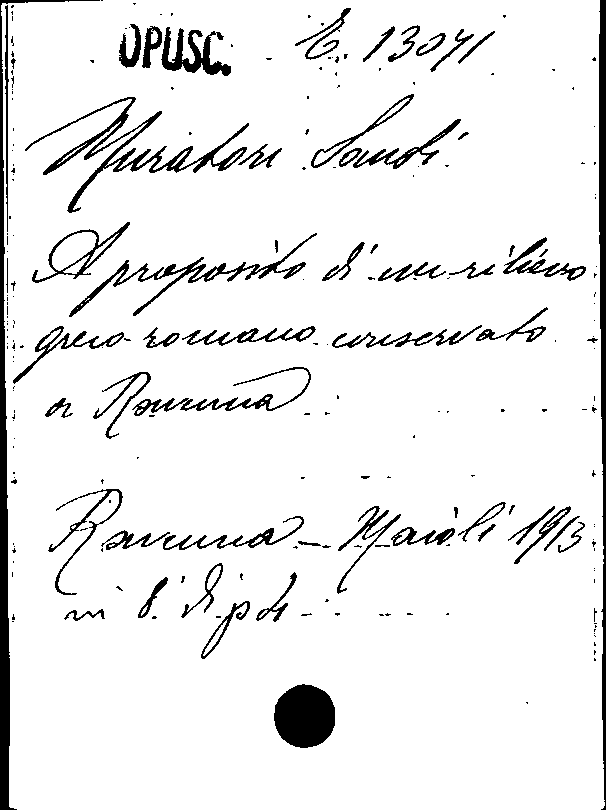 OPUSC. E. 13071
Muratori Santi
A proposito di un rilievo
greco-romano conservato
a Ravenna
Ravenna - Maioli 1913
in 8. di p